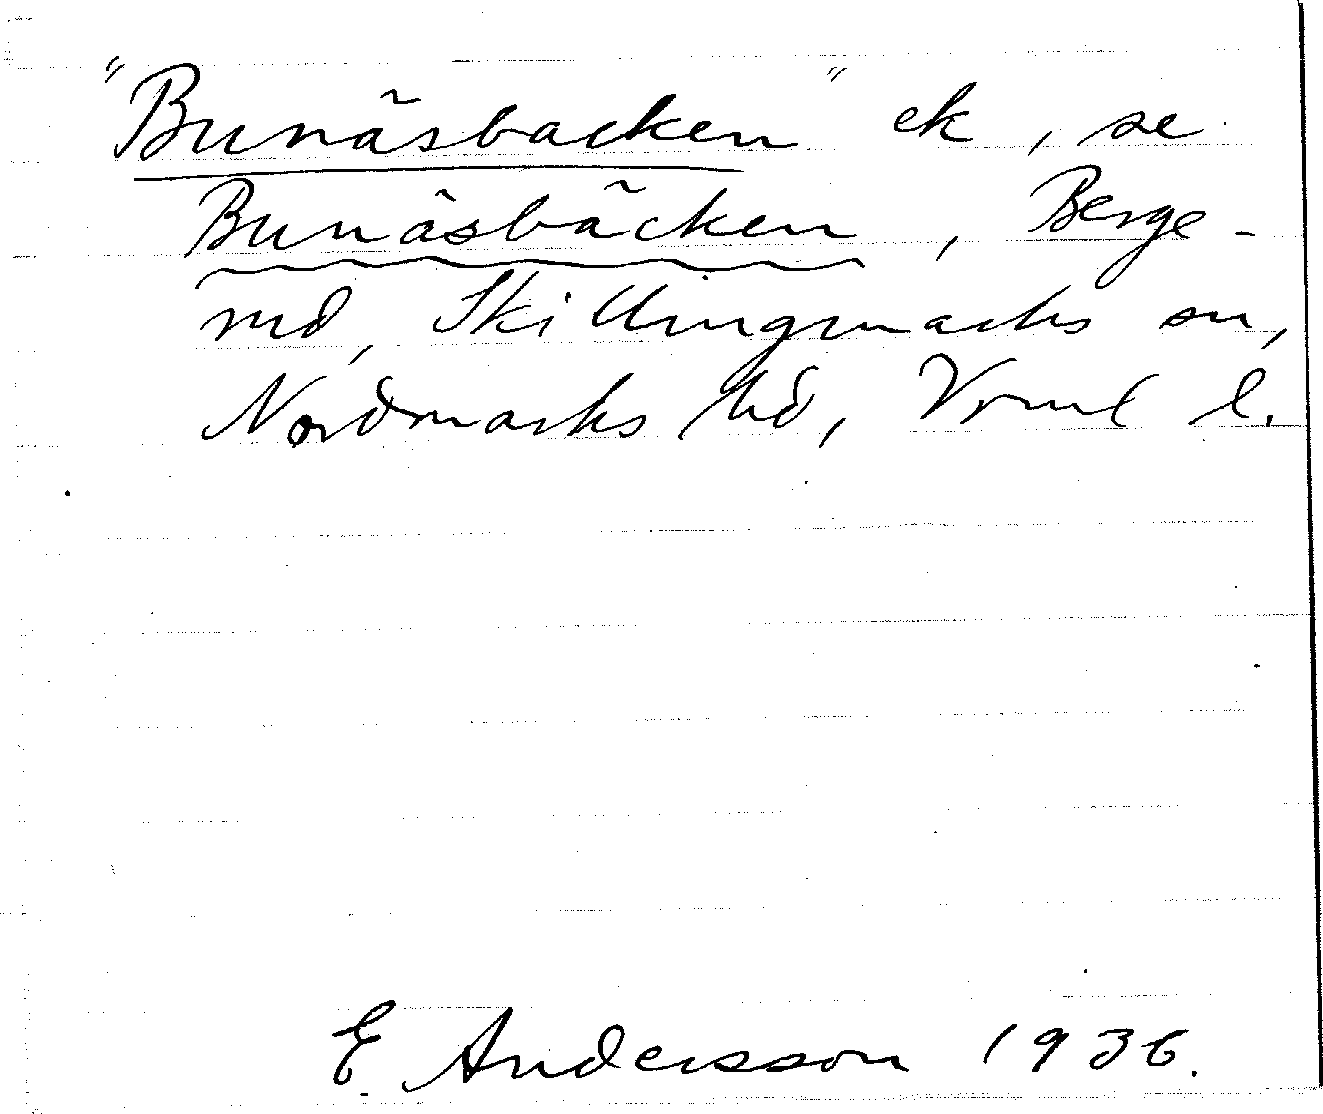 "Bunäsbacken" ek, se
Bunäsbäcken, Berge-
rud, Skillingmarks sn,
Nordmarks hd, Vrml l.
E Andersson 1936.